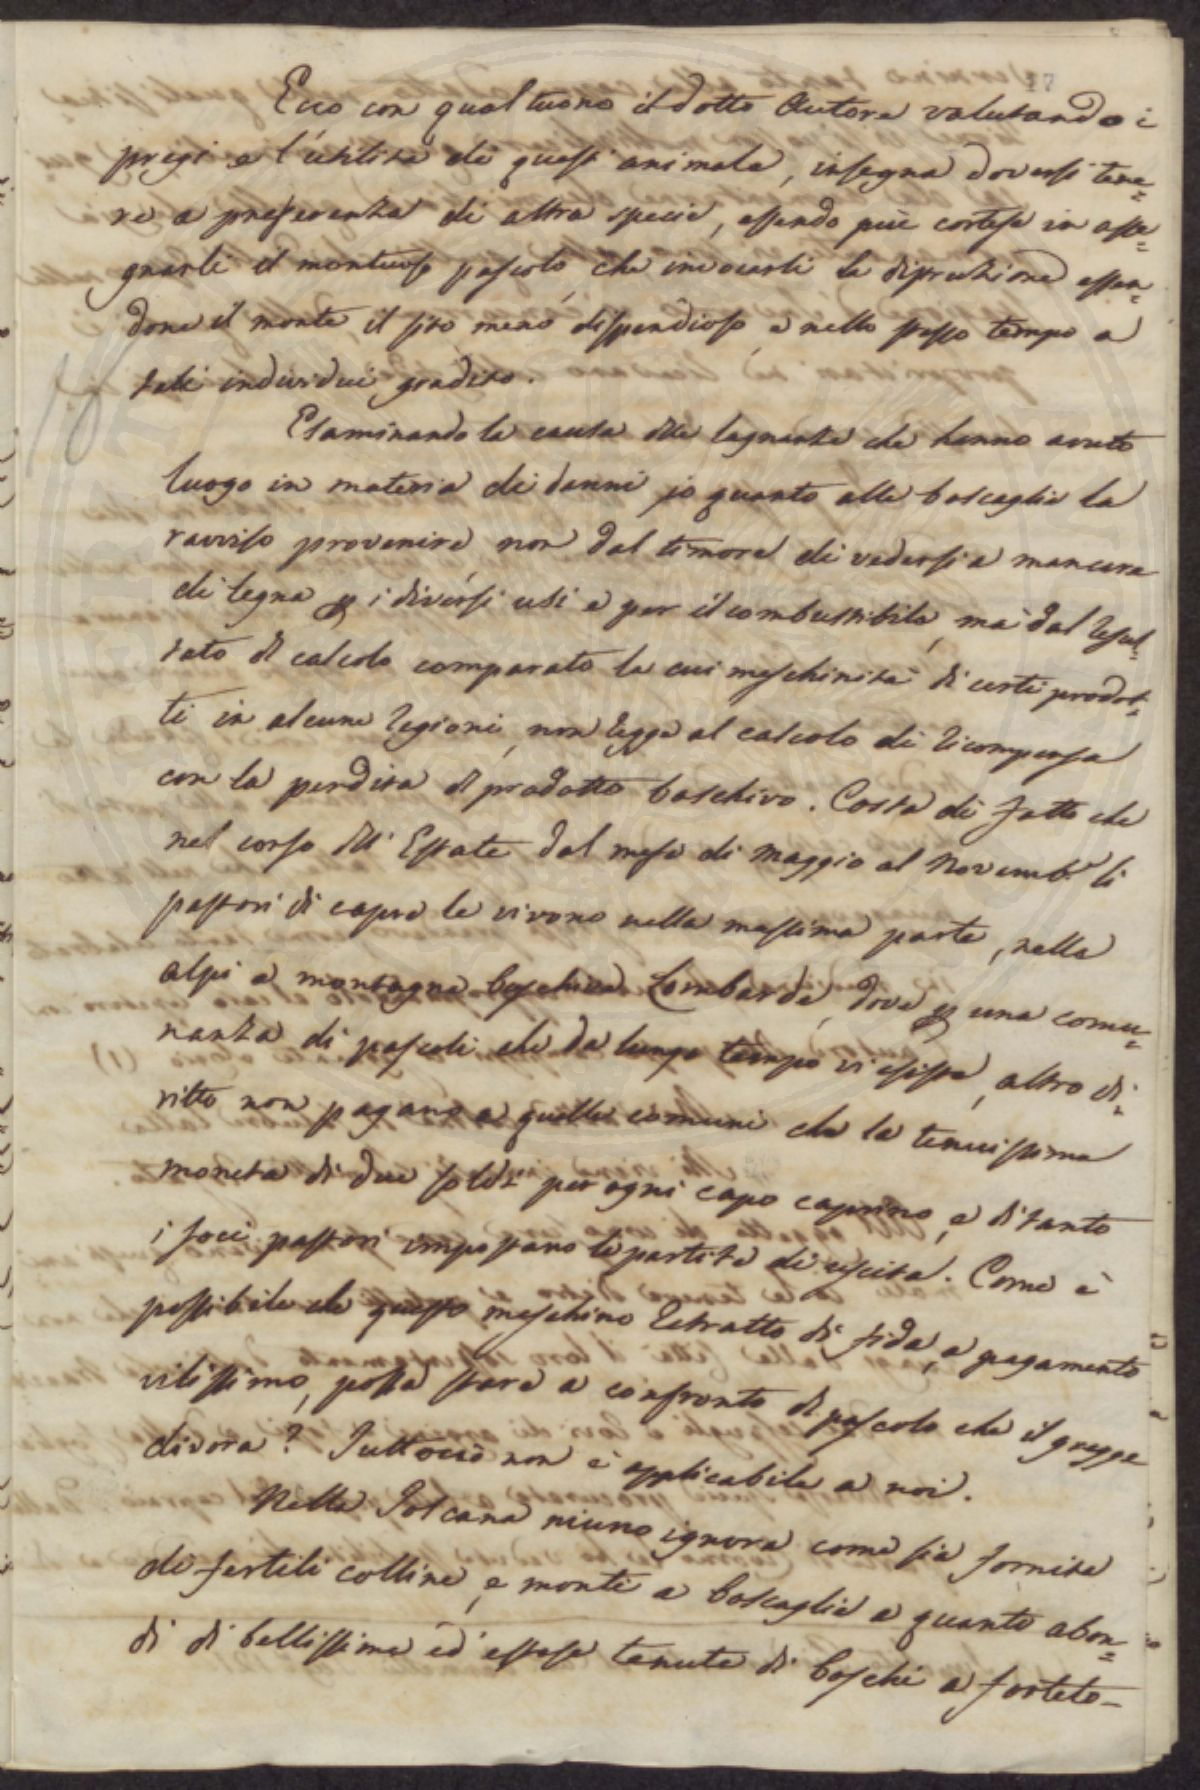 17
Ecco con qual tuono il dotto Autore valutando i
pregi e l'utilità di questi animale, insegna doversi tene=
re a preferenza di altra specie, essendo più cortese in asse=
gnarli il montuoso pascolo, che invocarli la distruzione essen=
done il monte, il sito meno dispendioso, e nello stesso tempo a
tali individui gradito.
Esaminando la causa delle lagnanze che hanno avuto
luogo in materia di danni io quanto alle boscaglie la
ravviso provenire non dal timore di vedersi a mancare
di legna p i diversi usi e per il combustibile, ma dal resul=
tato di calcolo comparato la cui meschinità di certi prodot=
ti in alcune regioni, non regge al calcolo di ricompensa
con la perdita di prodotto boschivo. Costa di fatto che
nel corso dell' Estate dal mese di Maggio al Novemb.e li
pastori di capre le vivono nella massima parte, nelle
alpi e montagne boschive Lombarde, dove p una comu=
nanza di pascoli che da lungo tempo vi esiste, altro di=
ritto non pagano a quelle comuni che la tenuissima
moneta di due soldi per ogni capo caprino, e di tanto
i soci pastori impostano le partite di uscita. Come è
possibile che questo meschino retratto di fida, e pagamento
vilissimo, possa stare a confronto di pascolo che il gregge
divora? Tuttociò non è applicabile a noi.
Nella Toscana niuno ignora come sia fornita
di fertili colline, e monti a boscaglie e quanto abon=
di di bellissime ed estese tenute di boschi a forteto-